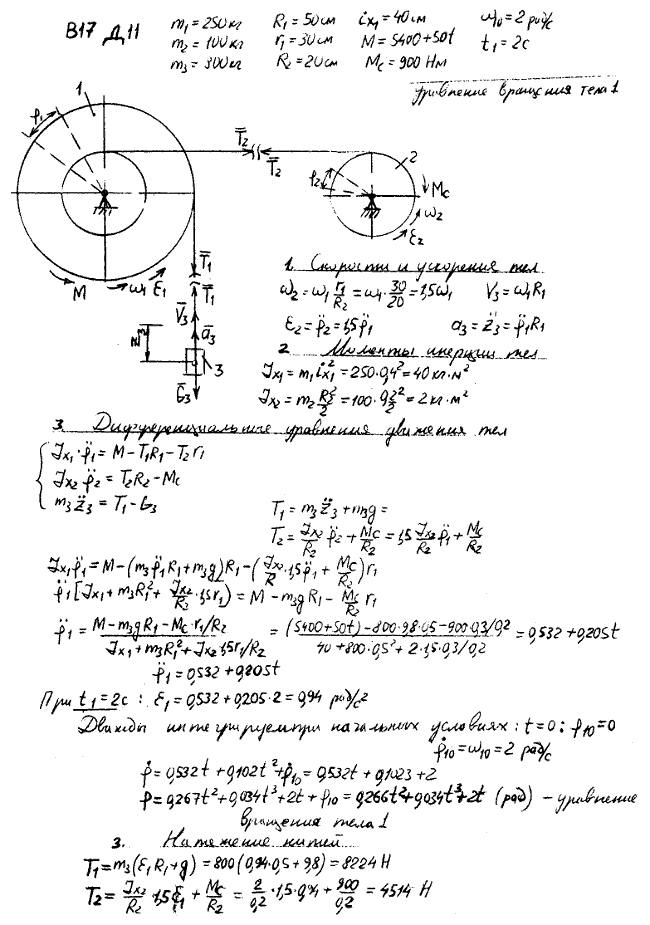 В17 Д11
m₁ = 250 кг R₁ = 50 см ix₁ = 40 см ω₁₀ = 2 рад/с
m₂ = 100 кг r₁ = 30 см M = 5400+50t t₁ = 2 с
m₃ = 300 кг R₂ = 20 см Mc = 900 Нм
уравнение вращения тела 1
1 ρ₁ T₂ T₂ ρ₂ 2 Mc ω₂ ε₂
M ω₁ ε₁ T₁ T₁ V₃ a₃ 3 G₃
1. Скорости и ускорения тел
ω₂ = ω₁ r₁/R₂ = ω₁·30/20 = 1,5ω₁ V₃ = ω₁R₁
ε₂ = φ̈₂ = 1,5φ̈₁ a₃ = z̈₃ = φ̈₁R₁
2 Моменты инерции тел
Jx₁ = m₁ix₁² = 250·0,4² = 40 кг·м²
Jx₂ = m₂R₂²/2 = 100·0,2²/2 = 2 кг·м²
3. Дифференциальные уравнения движения тел
Jx₁·φ̈₁ = M – T₁R₁ – T₂r₁
Jx₂φ̈₂ = T₂R₂ – Mc
m₃z̈₃ = T₁ – G₃
T₁ = m₃z̈₃ + m₃g =
T₂ = Jx₂/R₂ φ̈₂ + Mc/R₂ = 1,5 Jx₂/R₂ φ̈₁ + Mc/R₂
Jx₁φ̈₁ = M – (m₃φ̈₁R₁ + m₃g)R₁ – (Jx₂/R ·1,5φ̈₁ + Mc/R₂)r₁
φ̈₁[Jx₁ + m₃R₁² + Jx₂/R₂ ·1,5r₁) = M – m₃gR₁ – Mc/R₂ r₁
φ̈₁ = (M – m₃gR₁ – Mc·r₁/R₂)/(Jx₁ + m₃R₁² + Jx₂1,5r₁/R₂) = ((5400+50t) – 800·9,8·0,5 – 900·0,3/0,2)/(40 + 800·0,5² + 2·1,5·0,3/0,2) = 0,532 + 0,205t
φ̈₁ = 0,532 + 0,205t
При t₁ = 2с : ε₁ = 0,532 + 0,205·2 = 0,94 рад/с²
Дважды интегрируем при начальных условиях: t=0: φ₁₀=0
φ̇₁₀ = ω₁₀ = 2 рад/с
φ̇ = 0,532t + 0,102t² + φ̇₁₀ = 0,532t + 0,1023 + 2
φ = 0,267t² + 0,034t³ + 2t + φ₁₀ = 0,266t² + 0,034t³ + 2t (рад) – уравнение
вращения тела 1
3. Натяжение нитей
T₁ = m₃(ε₁R₁ + g) = 800(0,94·0,5 + 9,8) = 8224 Н
T₂ = Jx₂/R₂ 1,5ε₁ + Mc/R₂ = 2/0,2 ·1,5·0,94 + 900/0,2 = 4514 Н